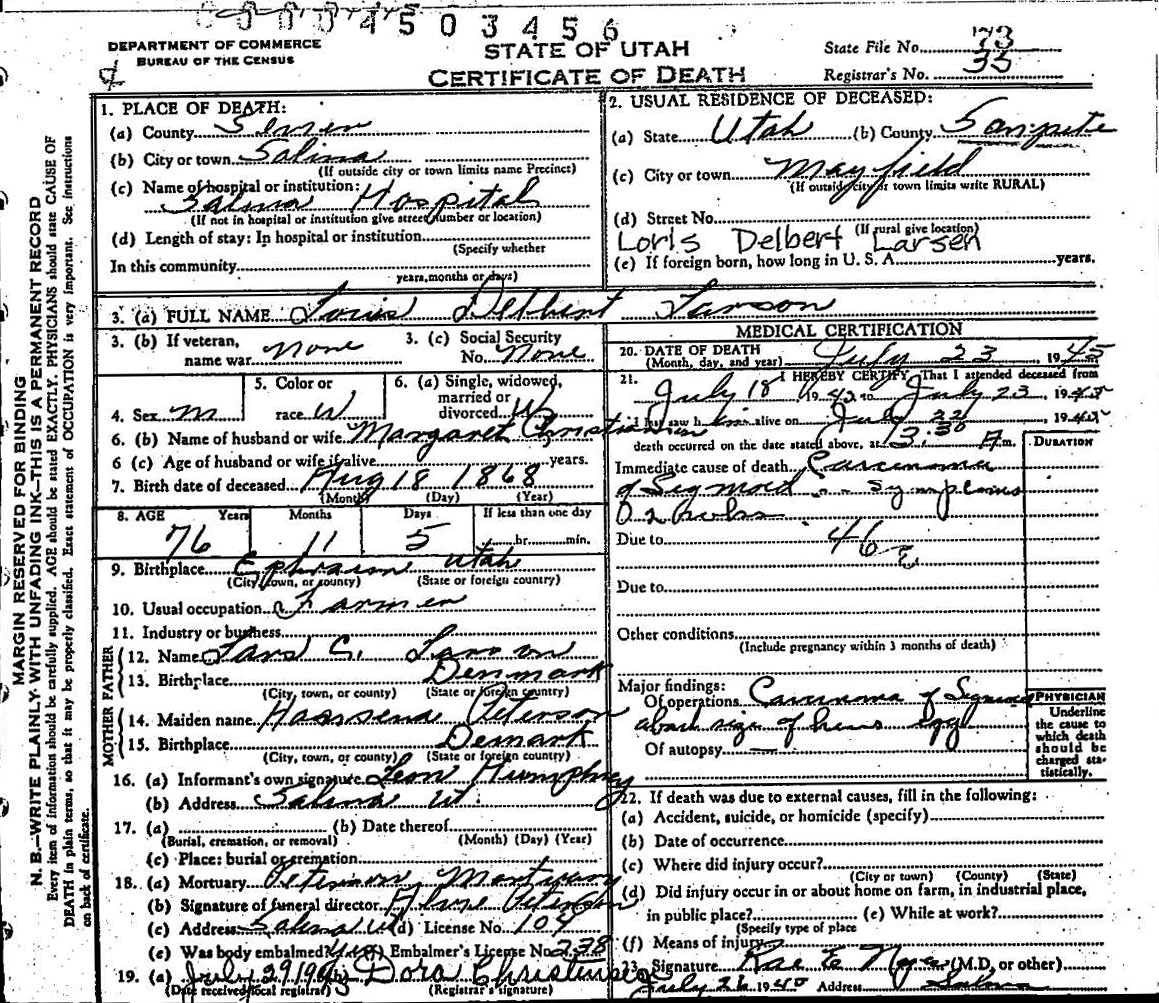 0 0 0 3 4 5 0 3 4 5 6
DEPARTMENT OF COMMERCE
BUREAU OF THE CENSUS
STATE OF UTAH
CERTIFICATE OF DEATH
State File No. 73
Registrar's No. 35
MARGIN RESERVED FOR BINDING
N. B.—WRITE PLAINLY WITH UNFADING INK—THIS IS A PERMANENT RECORD
Every item of information should be carefully supplied. AGE should be stated EXACTLY. PHYSICIANS should state CAUSE OF
DEATH in plain terms, so that it may be properly classified. Exact statement of OCCUPATION is very important. See instructions
on back of certificate.
1. PLACE OF DEATH:
(a) County Sevier
(b) City or town Salina
(If outside city or town limits name Precinct)
(c) Name of hospital or institution:
Salina Hospital
(If not in hospital or institution give street number or location)
(d) Length of stay: In hospital or institution
(Specify whether
In this community
years, months or days)
2. USUAL RESIDENCE OF DECEASED:
(a) State Utah (b) County Sanpete
(c) City or town Mayfield
(If outside city or town limits write RURAL)
(d) Street No.
(If rural give location)
Loris Delbert Larsen
(e) If foreign born, how long in U. S. A. years.
3. (a) FULL NAME Loris Delbert Larson
3. (b) If veteran, name war none
3. (c) Social Security No. None
4. Sex M
5. Color or race W
6. (a) Single, widowed, married or divorced W
6. (b) Name of husband or wife Margaret Christiansen
6 (c) Age of husband or wife if alive years.
7. Birth date of deceased Aug 18 1868
(Month) (Day) (Year)
8. AGE Years Months Days If less than one day
76 11 5 hr. min.
9. Birthplace Ephraim Utah
(City, town, or county) (State or foreign country)
10. Usual occupation Farmer
11. Industry or business
FATHER
12. Name Lars C. Larson
13. Birthplace Denmark
(City, town, or county) (State or foreign country)
MOTHER
14. Maiden name Peterson
15. Birthplace Demark
(City, town, or county) (State or foreign country)
16. (a) Informant's own signature Leon Humphrey
(b) Address Salina Ut.
17. (a) (b) Date thereof
(Burial, cremation, or removal) (Month) (Day) (Year)
(c) Place: burial or cremation
18. (a) Mortuary Peterson Mortuary
(b) Signature of funeral director Peterson
(c) Address Salina Ut (d) License No. 107
(e) Was body embalmed? Yes (f) Embalmer's License No. 238
19. (a) July 29 194 (b) Dora Christensen
(Date received local registrar) (Registrar's signature)
MEDICAL CERTIFICATION
20. DATE OF DEATH July 23, 1945
(Month, day, and year)
21. I HEREBY CERTIFY, That I attended deceased from
July 18 1942 to July 23, 1945
I last saw him alive on July 22, 1945
death occurred on the date stated above, at 3:30 A m.
DURATION
Immediate cause of death Carcinoma
of Sigmoid - Symptoms
Due to 46
Due to
Other conditions
(Include pregnancy within 3 months of death)
Major findings:
Of operations Carcinoma of Sigmoid
about size of hens egg
Of autopsy —
PHYSICIAN
Underline
the cause to
which death
should be
charged sta-
tistically.
22. If death was due to external causes, fill in the following:
(a) Accident, suicide, or homicide (specify)
(b) Date of occurrence
(c) Where did injury occur?
(City or town) (County) (State)
(d) Did injury occur in or about home on farm, in industrial place,
in public place? (e) While at work?
(Specify type of place
(f) Means of injury
23. Signature Rae E Noyes (M.D. or other)
July 26 1945 Address Salina